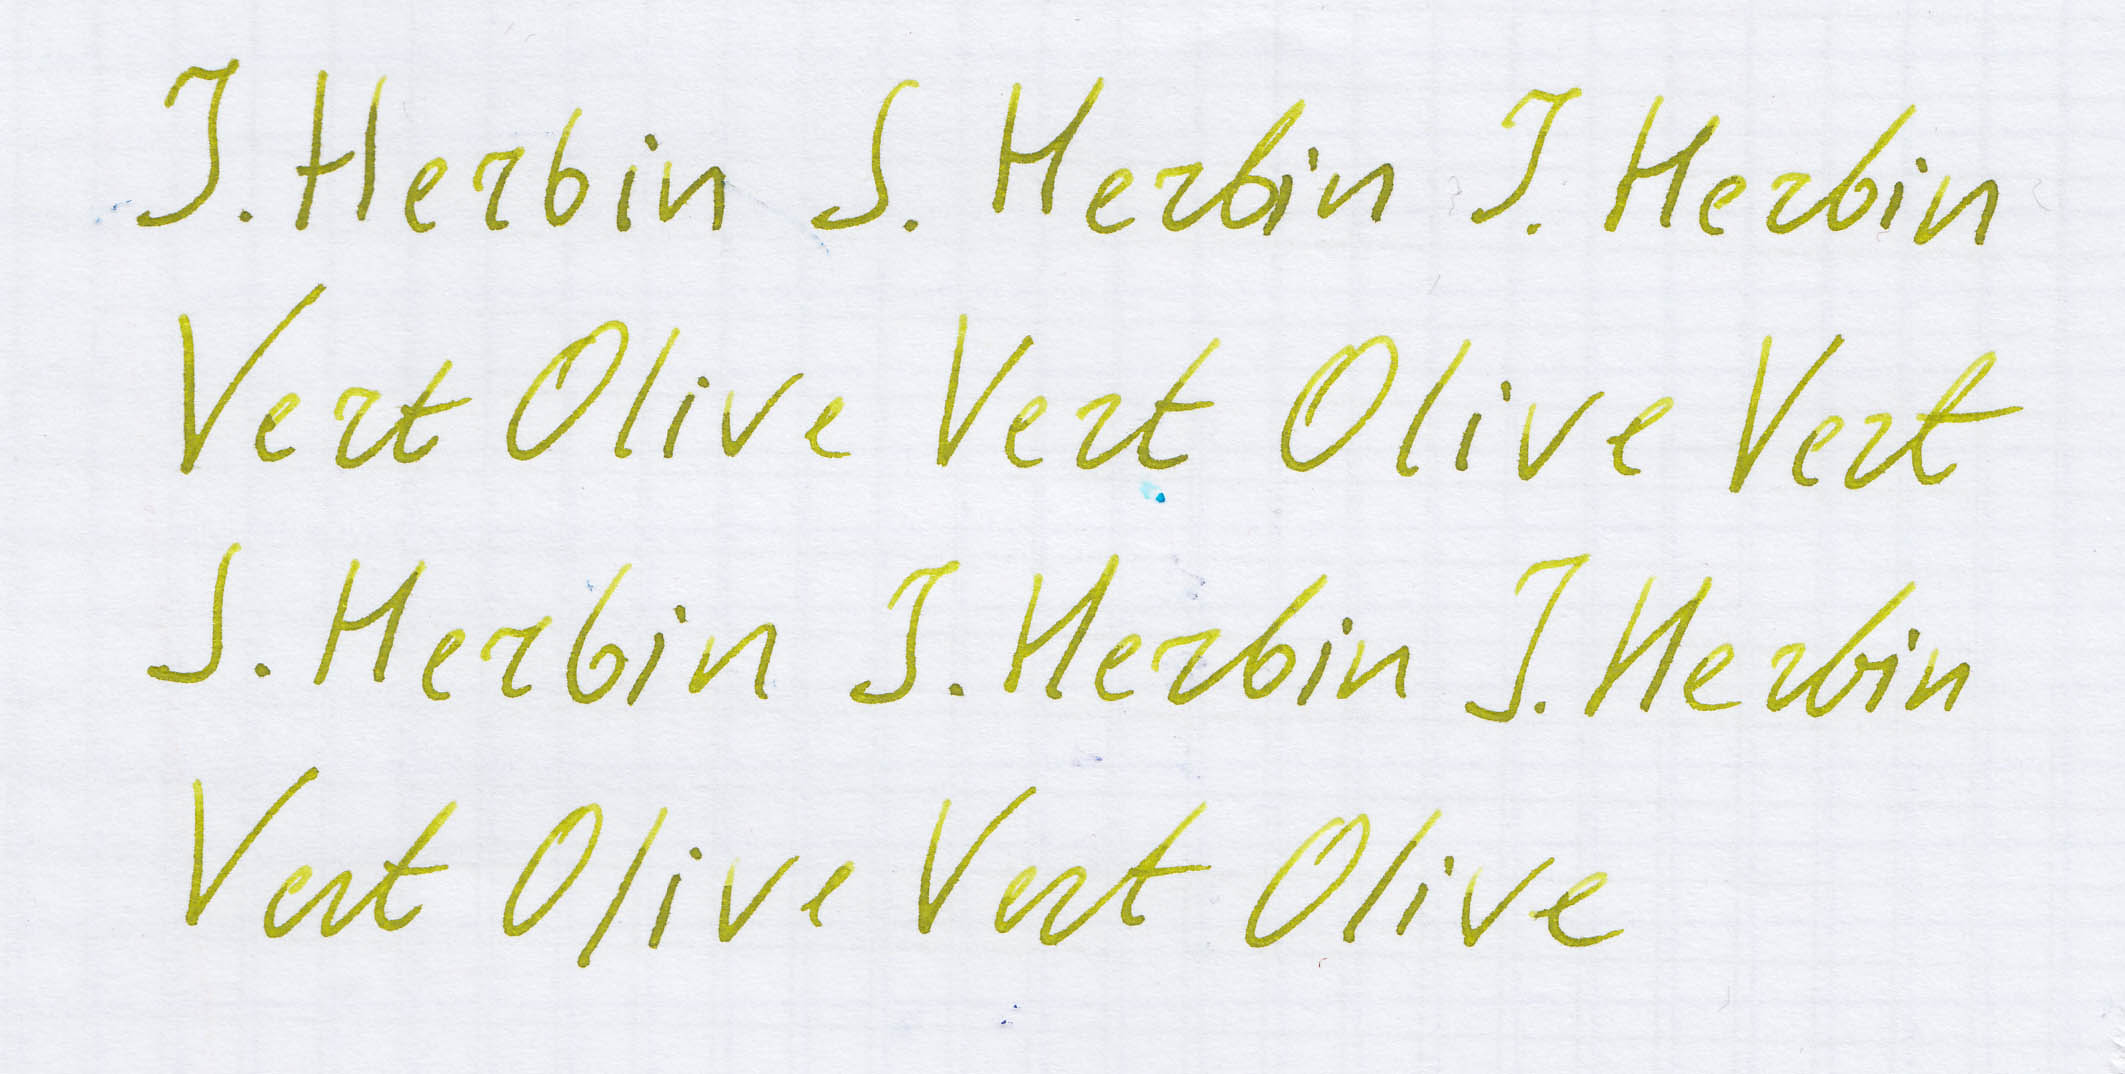 J. Herbin J. Herbin J. Herbin
Vert Olive Vert Olive Vert
J. Herbin J. Herbin J. Herbin
Vert Olive Vert Olive